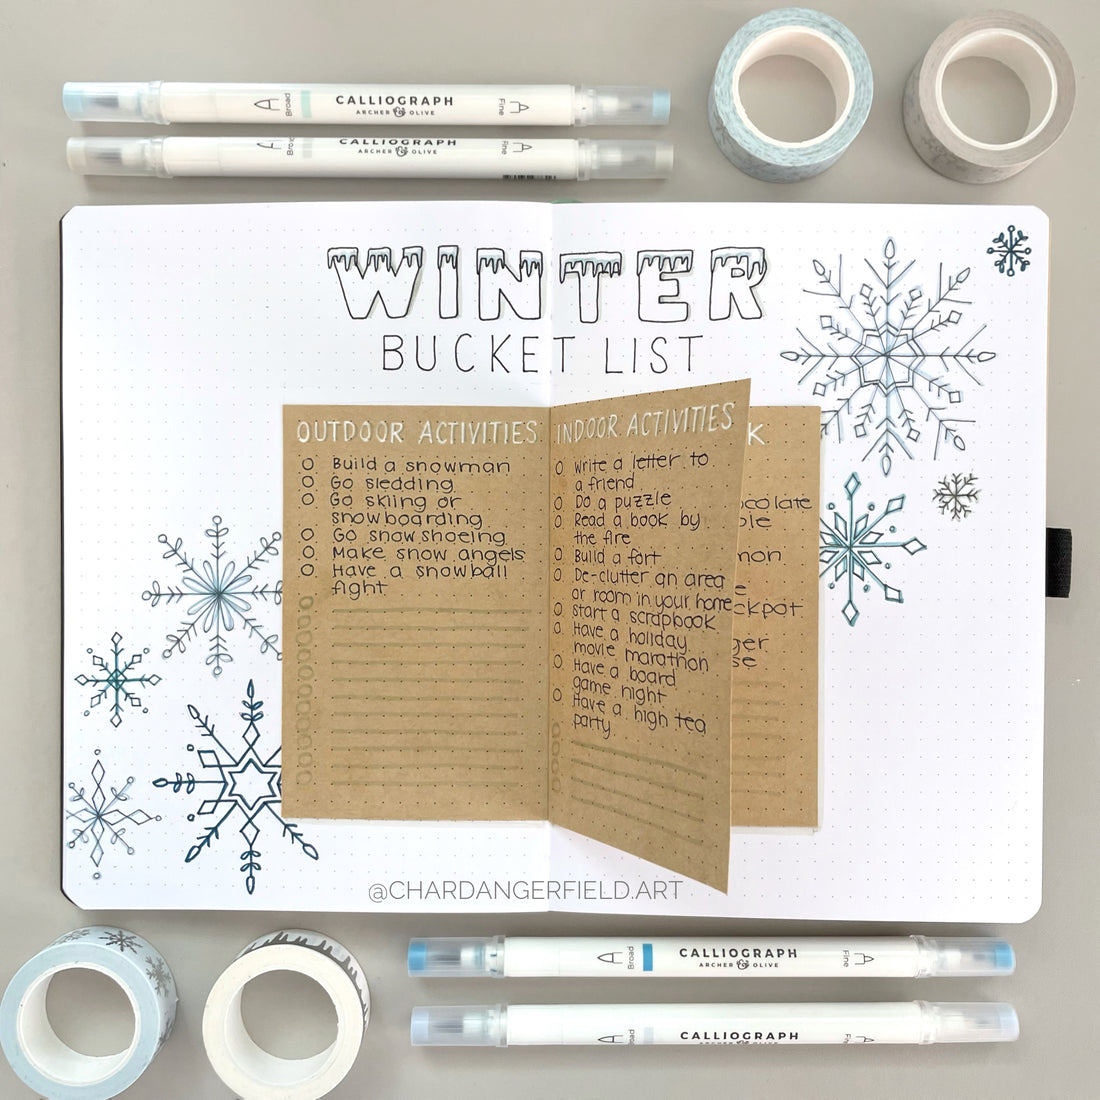 Broad
CALLIOGRAPH
ARCHER & OLIVE
Fine
Broad
CALLIOGRAPH
ARCHER & OLIVE
Fine
WINTER
BUCKET LIST
OUTDOOR ACTIVITIES
Build a snowman
Go sledding
Go skiing or
snowboarding
Go snowshoeing
Make snow angels
Have a snowball
fight
INDOOR ACTIVITIES
Write a letter to
a friend
Do a puzzle
Read a book by
the fire
Build a fort
De-clutter an area
or room in your home
Start a scrapbook
Have a holiday
movie marathon
Have a board
game night
Have a high tea
party
K
@CHARDANGERFIELD.ART
Broad
CALLIOGRAPH
ARCHER & OLIVE
Fine
Broad
CALLIOGRAPH
ARCHER & OLIVE
Fine